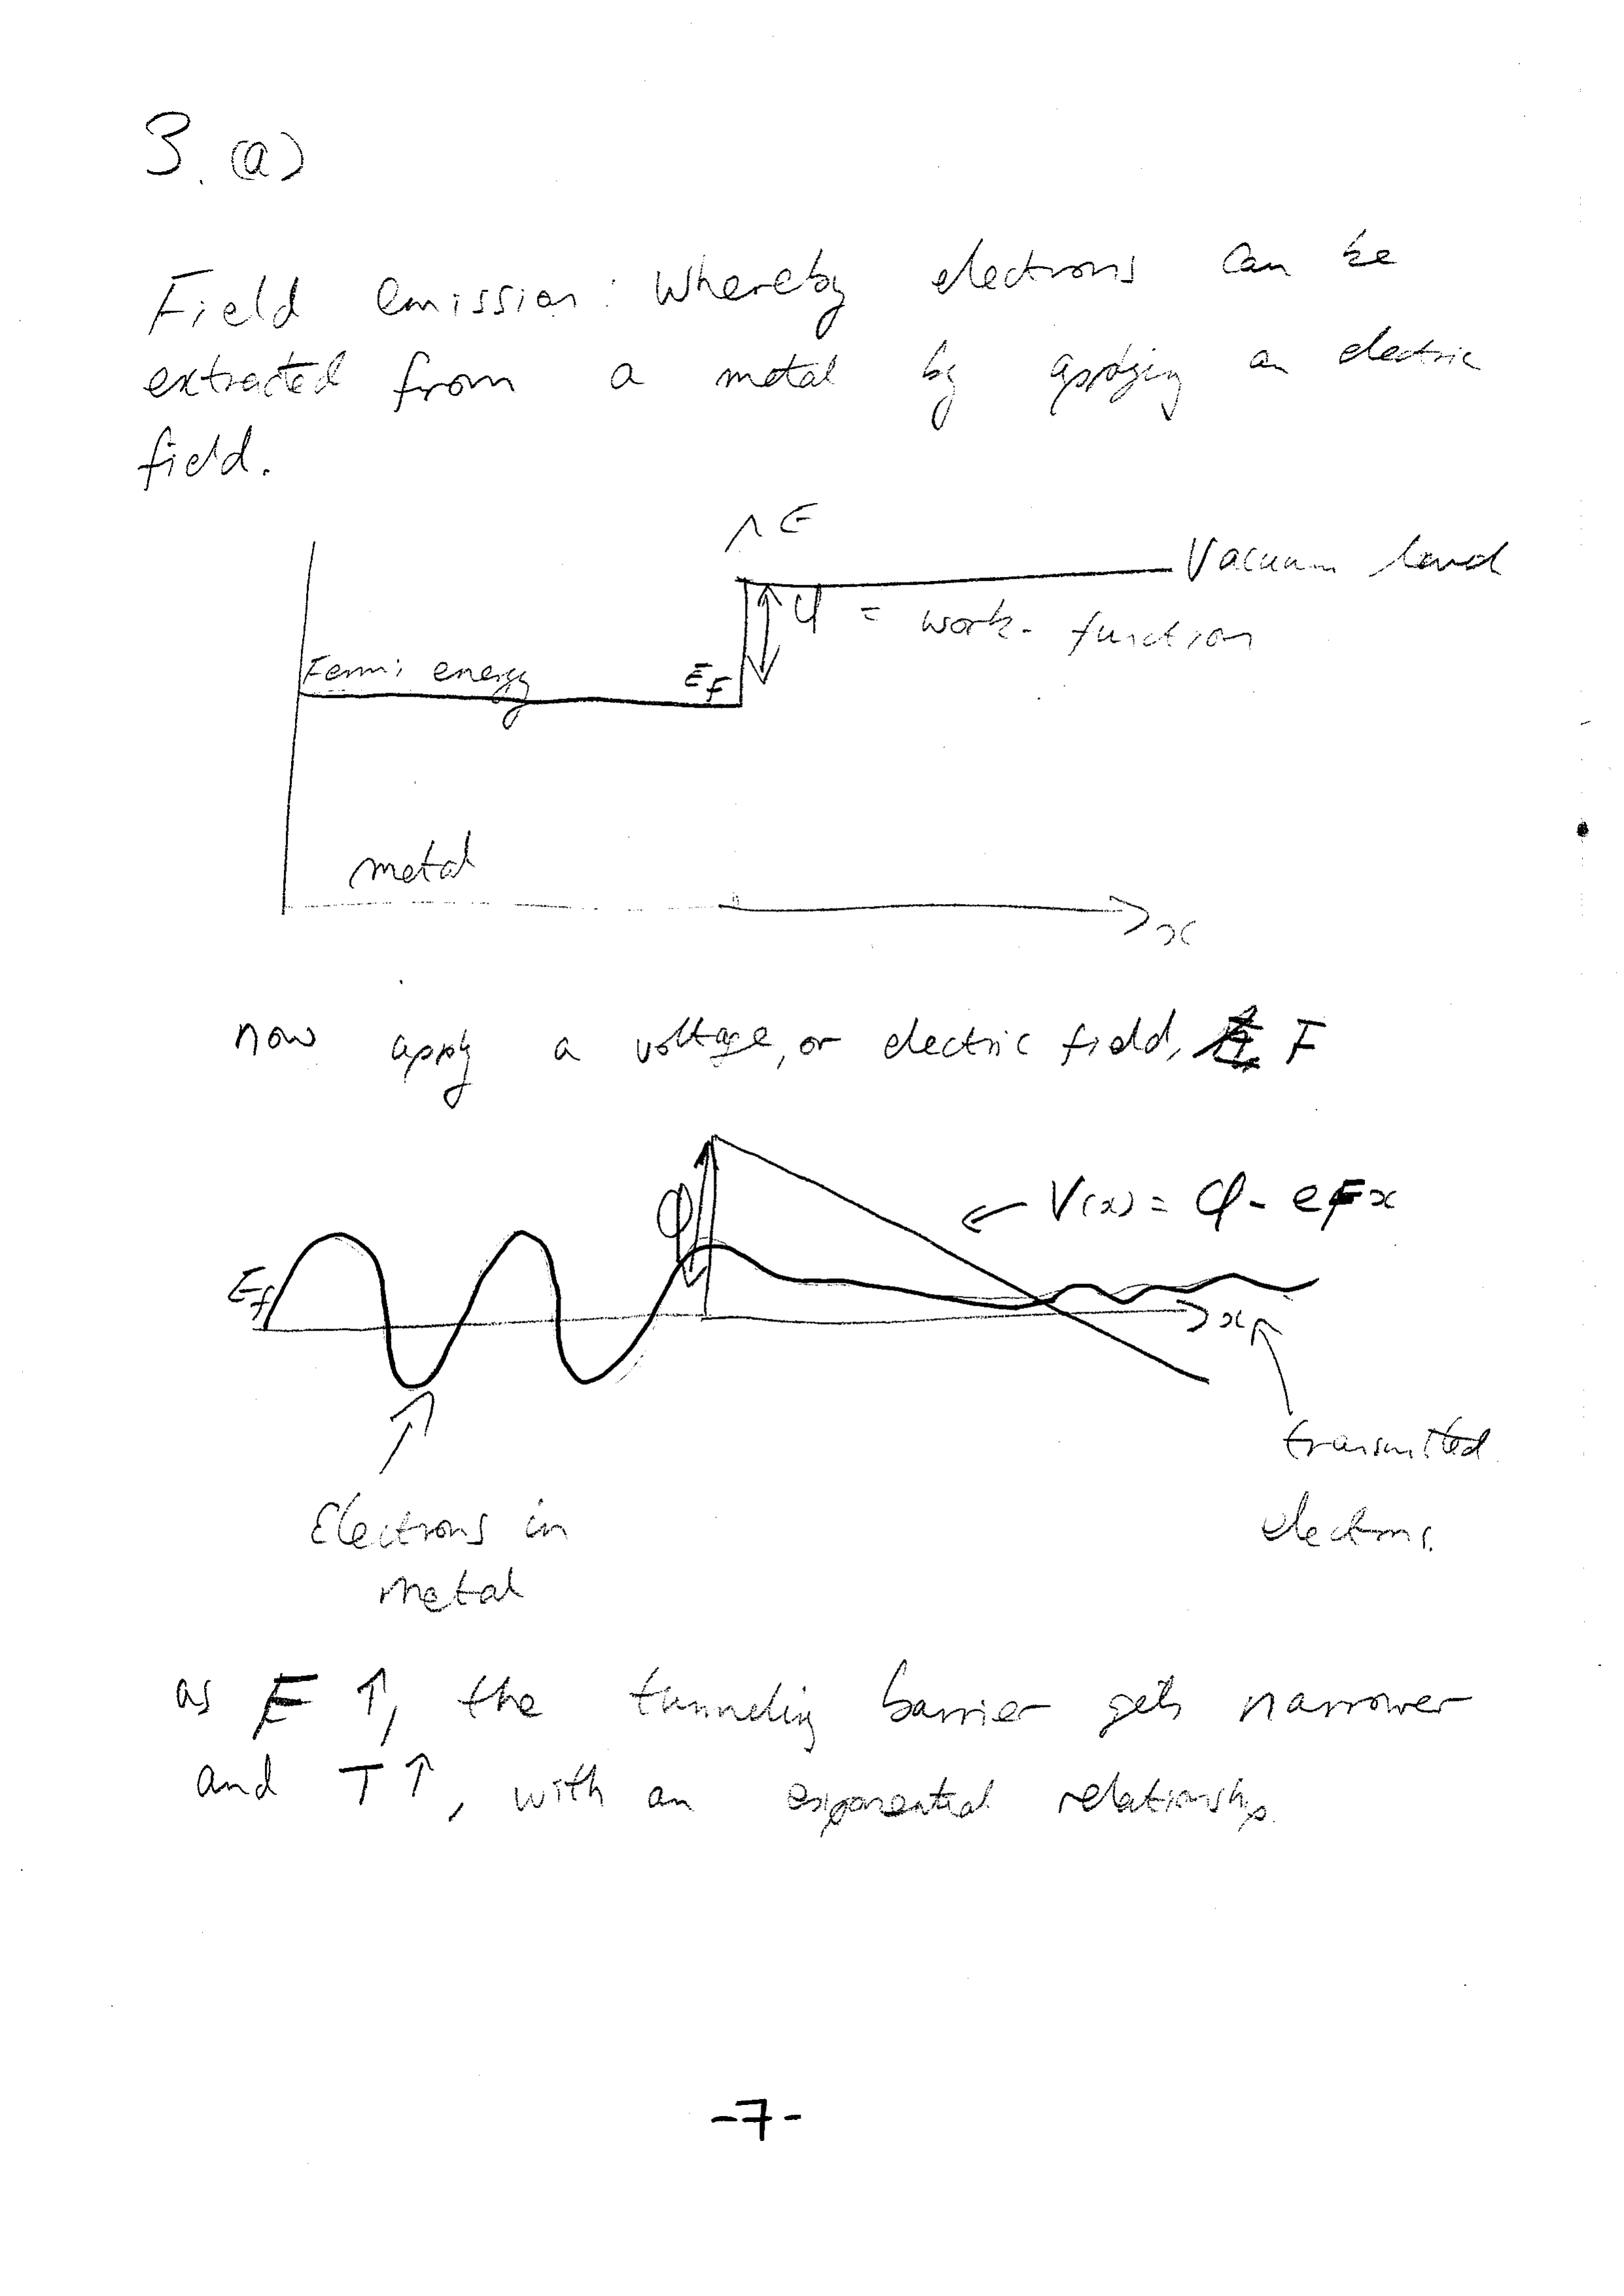 3. (a)
Field emission: Whereby electrons can be
extracted from a metal by applying an electric
field.
E
Vacuum level
φ = work-function
Fermi energy
E_F
metal
x
now apply a voltage, or electric field, F
φ
V(x) = φ - eFx
E_f
x
transmitted
electrons.
Electrons in
metal
as F ↑, the tunneling barrier gets narrower
and T ↑, with an exponential relationship.
-7-